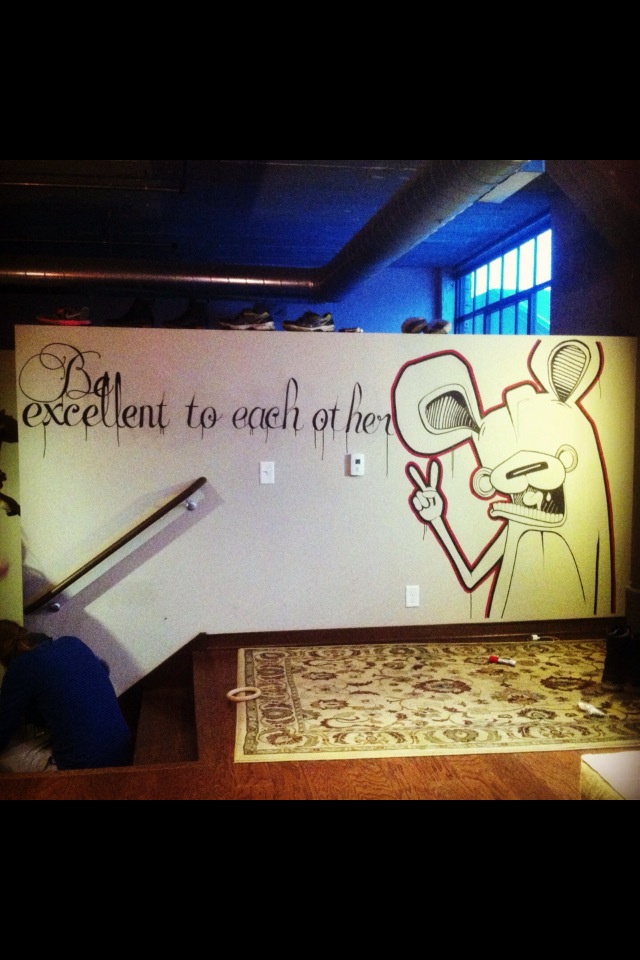 Be
excellent to each other